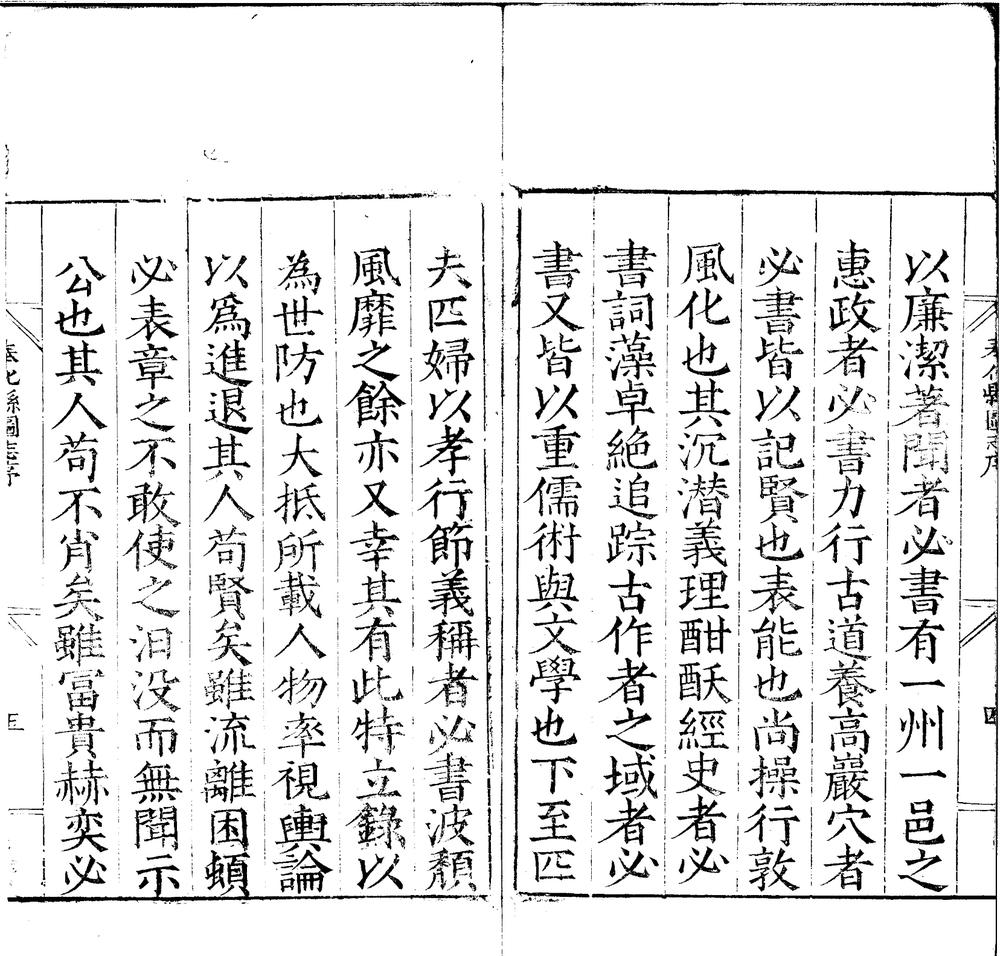 以廉潔著聞者必書有一州一邑之
惠政者必書力行古道養高巖穴者
必書皆以記賢也表能也尚操行敦
風化也其沉潛義理酣飫經史者必
書詞藻卓絶追踪古作者之域者必
書又皆以重儒術與文學也下至匹
夫匹婦以孝行節義稱者必書波頹
風靡之餘亦又幸其有此特立錄以
為世防也大抵所載人物率視輿論
以爲進退其人苟賢矣雖流離困頓
必表章之不敢使之汨没而無聞示
公也其人苟不肖矣雖冨貴赫奕必
化縣圖志序